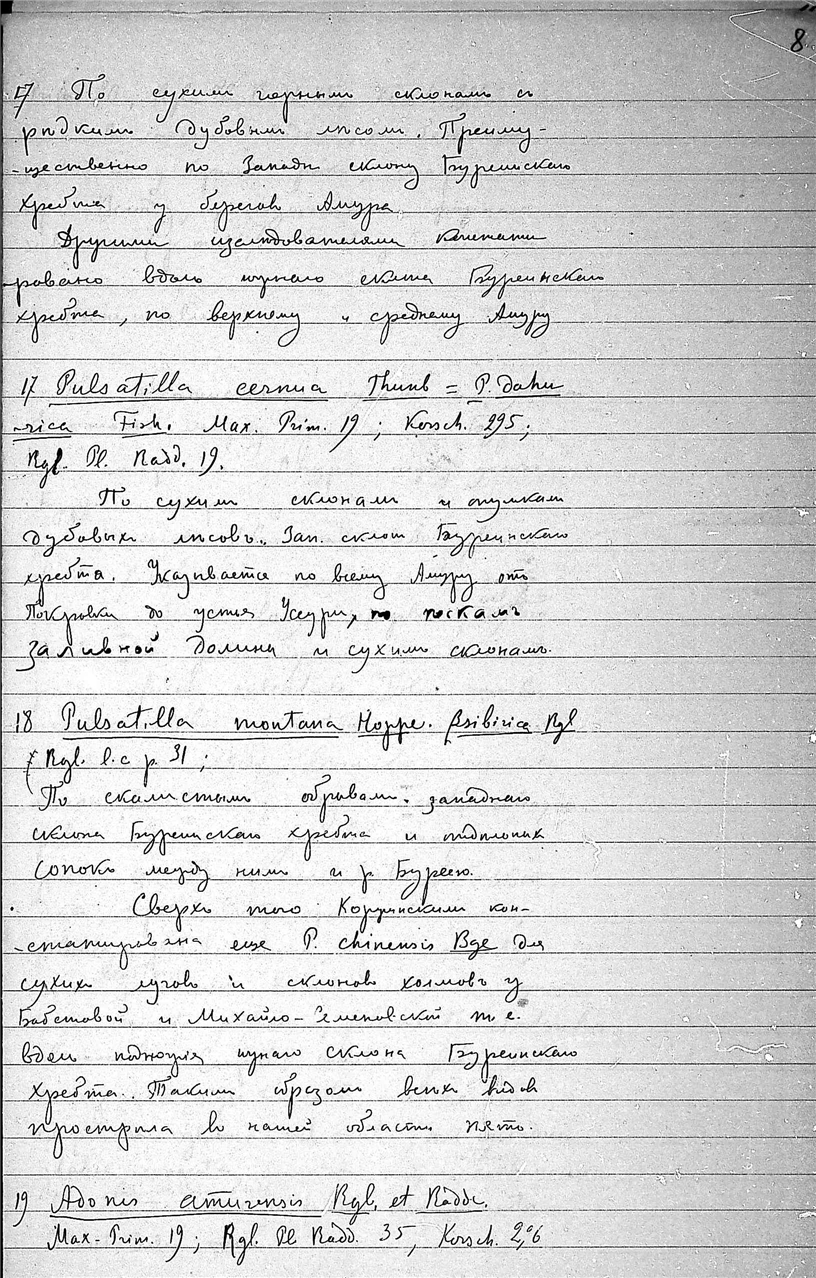 8
По сухимъ горнымъ склонамъ съ
рѣдкимъ дубовым лѣсомъ. Преиму-
-щественно по Западн склону Буреинскаго
хребта у берегов Амура
Другими изслѣдователями констати
-ровано вдоль южнаго склона Буреинскаго
хребта, по верхнему и среднему Амуру
17 Pulsatilla cernua Thunb = P. dahu
-rica Fish. Max. Prim. 19; Korsch. 295;
Rgl. Pl. Radd. 19.
По сухимъ склонамъ и опушкам
дубовыхъ лѣсовъ. Зап. склон Буреинскаго
хребта. Указывается по всему Амуру отъ
Покровки до устья Усури, по пескамъ
заливной долины и сухимъ склонамъ.
18 Pulsatilla montana Hoppe. β sibirica Rgl
Rgl. l. c p. 31;
По скалистымъ обрывамъ западнаго
склона Буреинскаго хребта и
сопокъ между нимъ и р Буреею.
Сверхъ того Коржинскимъ кон-
-статирована еще P. chinensis Bge для
сухихъ лугов и склоновъ холмовъ у
Бабстовой и Михайло-Семеновской т. е.
вдоль подножія южнаго склона Буреинскаго
хребта. Такимъ образомъ всѣхъ видов
прострѣла въ нашей области пять.
19 Adonis amurensis Rgl. et Radde.
Max. Prim. 19; Rgl. Pl Radd. 35, Korsch. 296